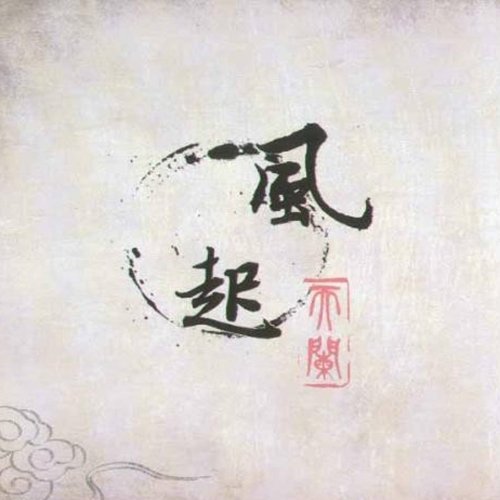 風
起
天闌